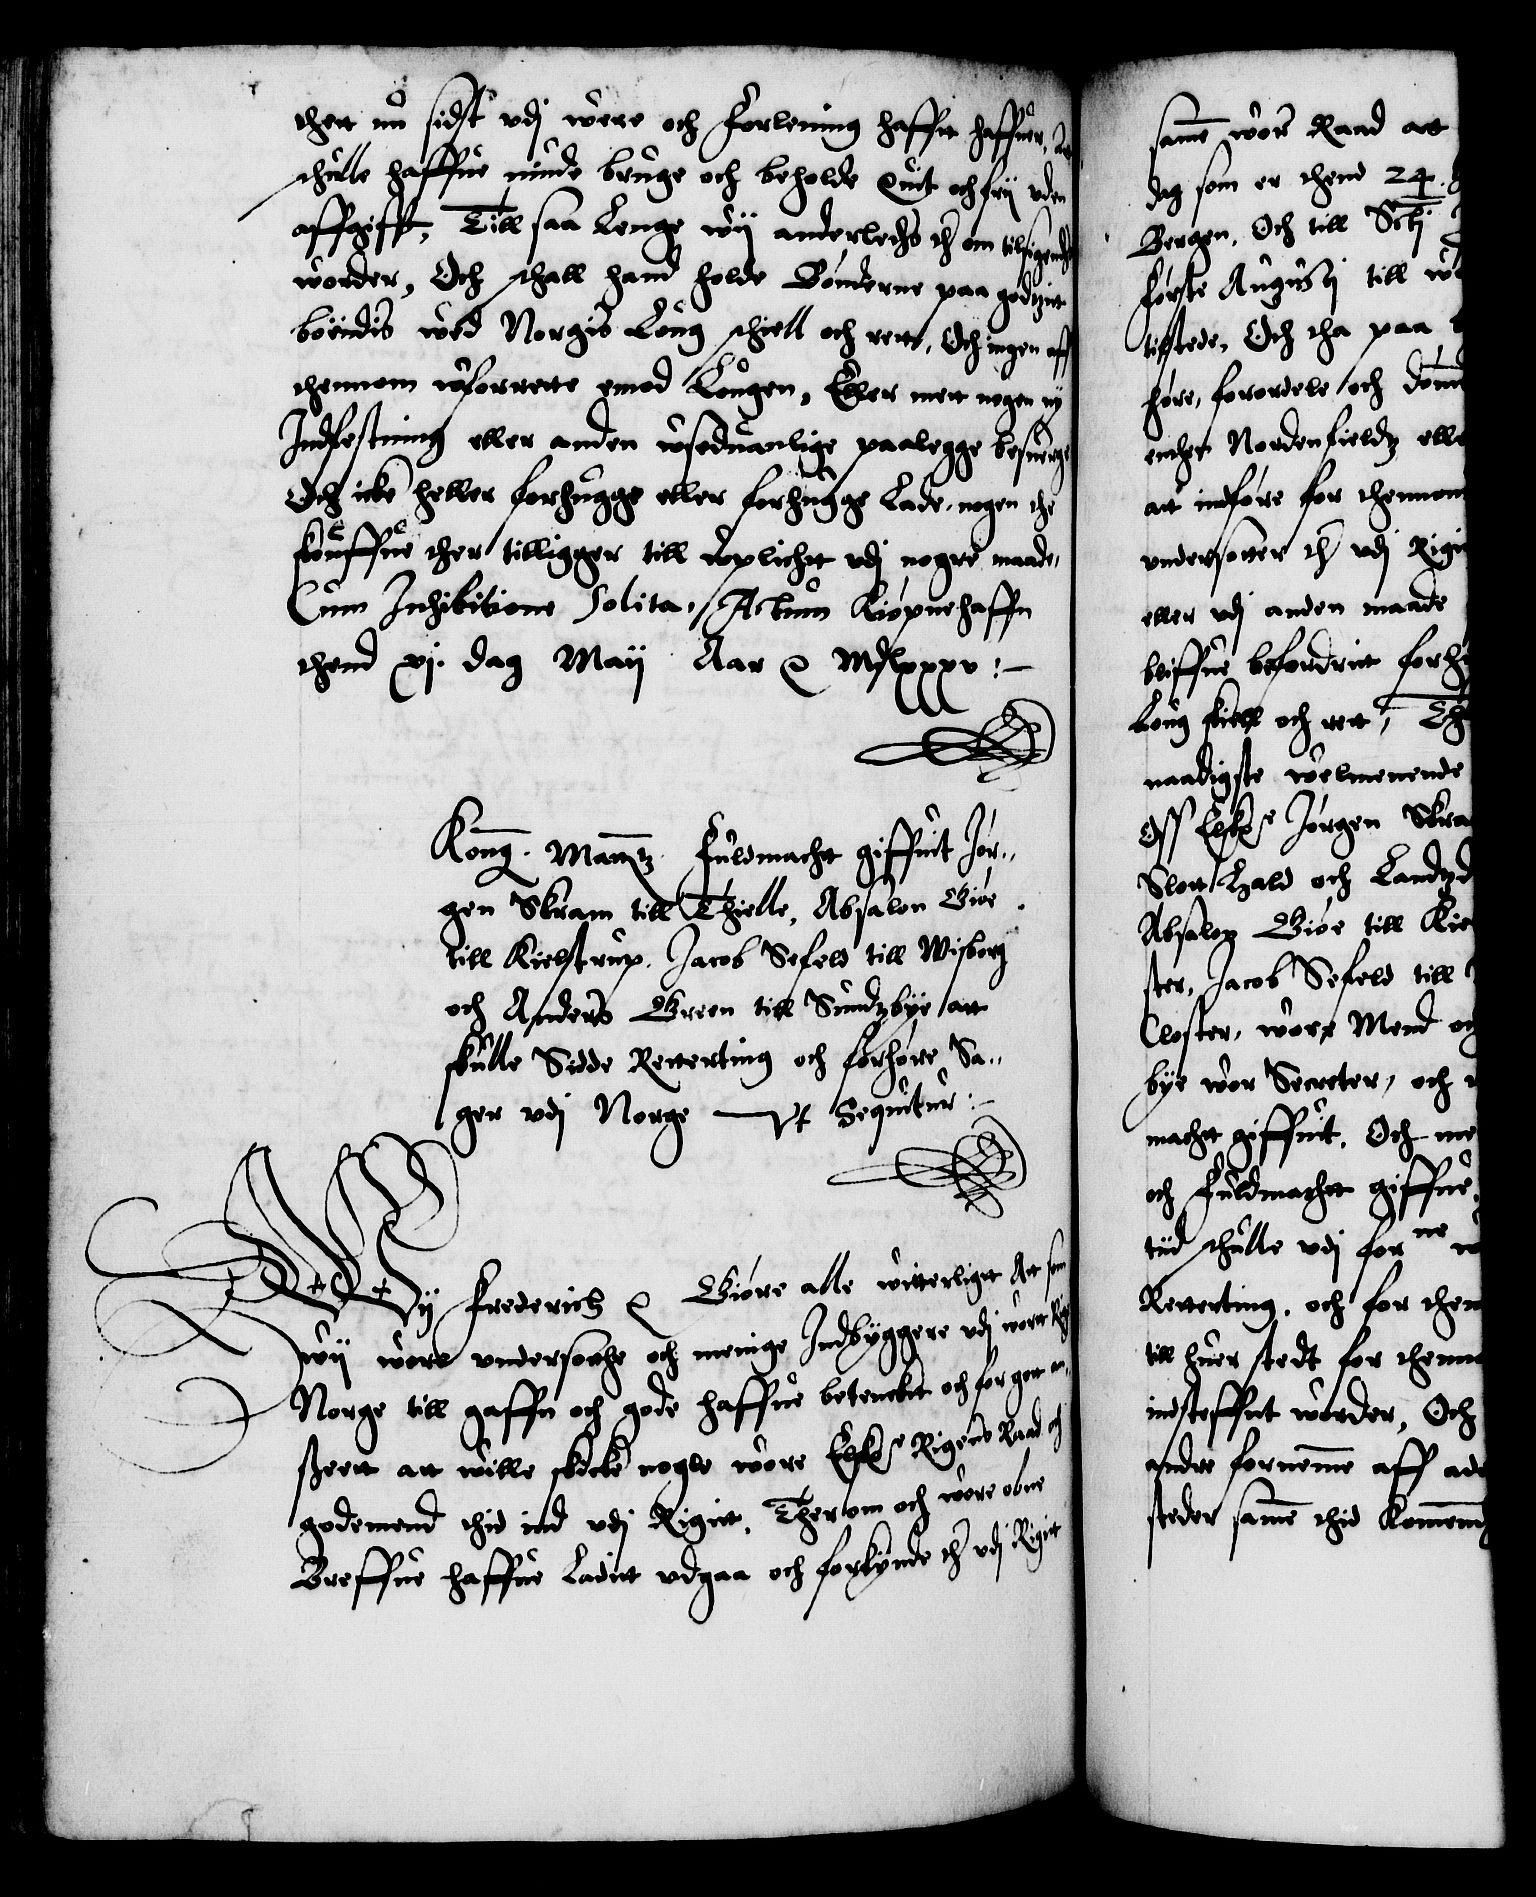 thet nu sidst vdj were och Forlening hafft haffuer, At
schulle haffue niude bruge och beholde quit och frij vden
affgifft, Till saa Lenge wij anderledis th om tilsigendis
worder, Och schall hand holde Bønderne paa godtzit
boendis wed Norgis Loug schiell och rett, Och ingen aff
thennom vforrette emod Lougen, Eller mett nogen ny
Indfestning eller anden wseduanlige paalegge besuerge
Och icke heller forhugge eller forhugge Lade nogen the
skouffue ther tilligger till vplicht vdj nogre maade,
Cum Inhibitione Solita, Actum Kiøpnehaffn
thend vj. dag Maij Aar &c Mdlxxxv:
Kong. Maytz. Fuldmacht giffuit Jør-
gen Skram till Thielle, Absalon Giøe
till Kielstrup, Jacob Sefeld till Wisborg
och Anders Green till Sundzbye att
skulle Sidde Retterting och forhøre Sa-
ger vdj Norge Vt Sequitur:
Wij Frederich &c Giøre alle witterligt At som
wij wore vndersotthe och menige Indbyggere vdj wort Rige
Norge till gaffn och gode haffue betenckt och for gott an-
szeett att wille skicke nogle wore Elske Rigens Raad och
godemend thid ind vdj Rigit, Ther om och wore obne
Breffue haffue Ladit vdgaa och forkynde th vdj Rigit
same wor Raad att
dag som er thend 24.
Bergen, Och till Sctj
første Augustj till
tilstede, Och tha paa
høre, fordele och dømme
enthen Nordenfieldz eller
att indføre for thennom
vndersotter th vdj Rigit
eller vdj anden maade
bliffue befordrit
Loug skiell och rett,
naadigste welmenende
Oss Elske Jørgen Skram
Slott Hald och
Absalon Giøe till
ster, Jacob Sefeld till
Closter, wore Mend och
bye wor Secreter, och
macht giffuit, Och
och Fuldmacht giffue
tiid schulle vdj forne
Retterting, och for
till huer stedt for
indsteffnt worder, Och
andre fornemme aff
steder same thid